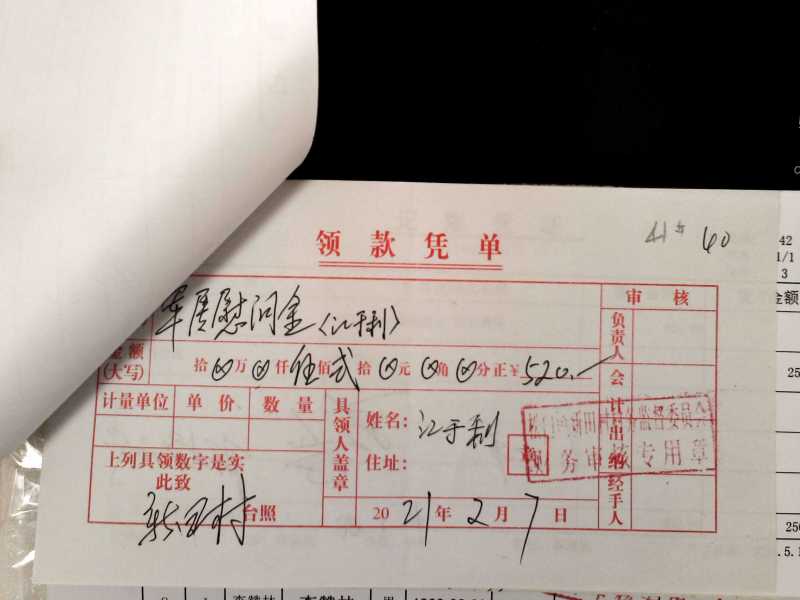 领款凭单
41# 40
军属慰问金(江于利)
审核
金额
(大写)
拾⊗万⊗仟伍佰贰拾⊗元⊗角⊗分正¥520.—
负责人
会计
出纳
经手人
计量单位 单价 数量
具领人盖章
姓名: 江于利
住址:
务审核专用章
上列具领数字是实
此致
台照
2021年2月7日
42
1/1
3
金额